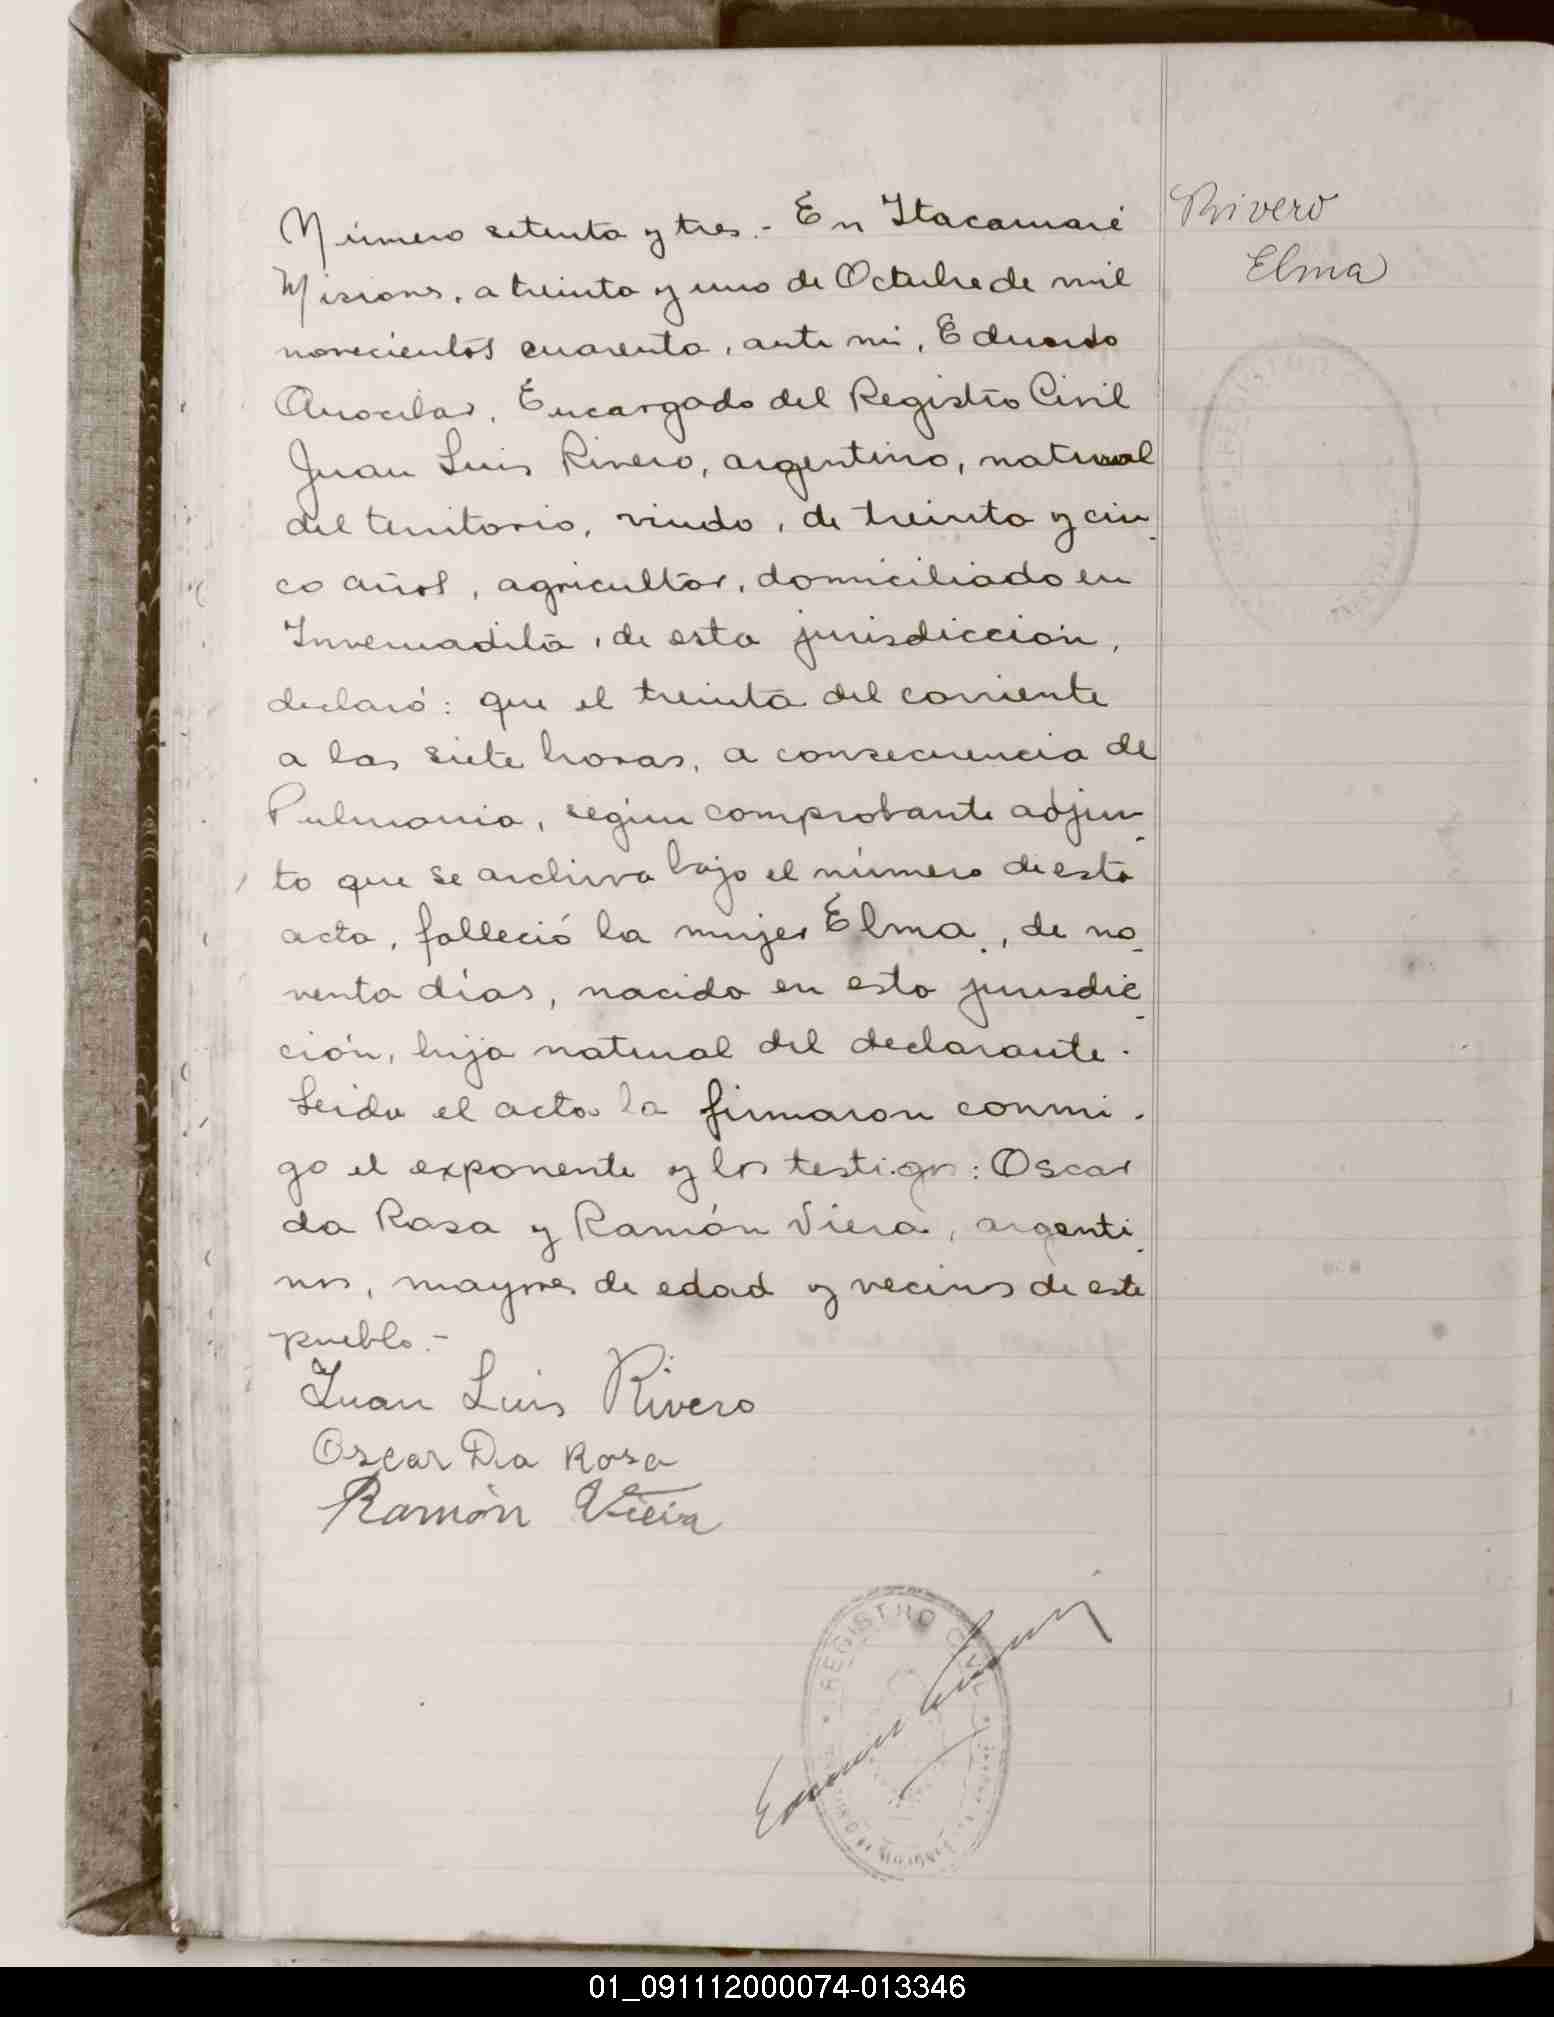 Número setenta y tres.- En Itacaruaré
Misiones, a treinta y uno de Octubre de mil
novecientos cuarenta, ante mi, Eduardo
Encargado del Registro Civil
Juan Luis Rivero, argentino, natural
del territorio, viudo, de treinta y cin
co años, agricultor, domiciliado en
Invernadita, de esta jurisdicción,
declaró: que el treinta del corriente
a las siete horas, a consecuencia de
Pulmonia, según comprobante adjun
to que se archiva bajo el número de esta
acta, falleció la mujer Elma, de no
venta días, nacida en esta jurisdic
ción, hija natural del declarante.
Leida el acta la firmaron conmi
go el exponente y los testigos: Oscar
da Rosa y Ramón Viera, argenti
nos, mayores de edad y vecinos de este
pueblo.-
Juan Luis Rivero
Oscar Da Rosa
Ramón Vieira
Rivero
Elma
REGISTRO
REGISTRO CIVIL
01_091112000074-013346